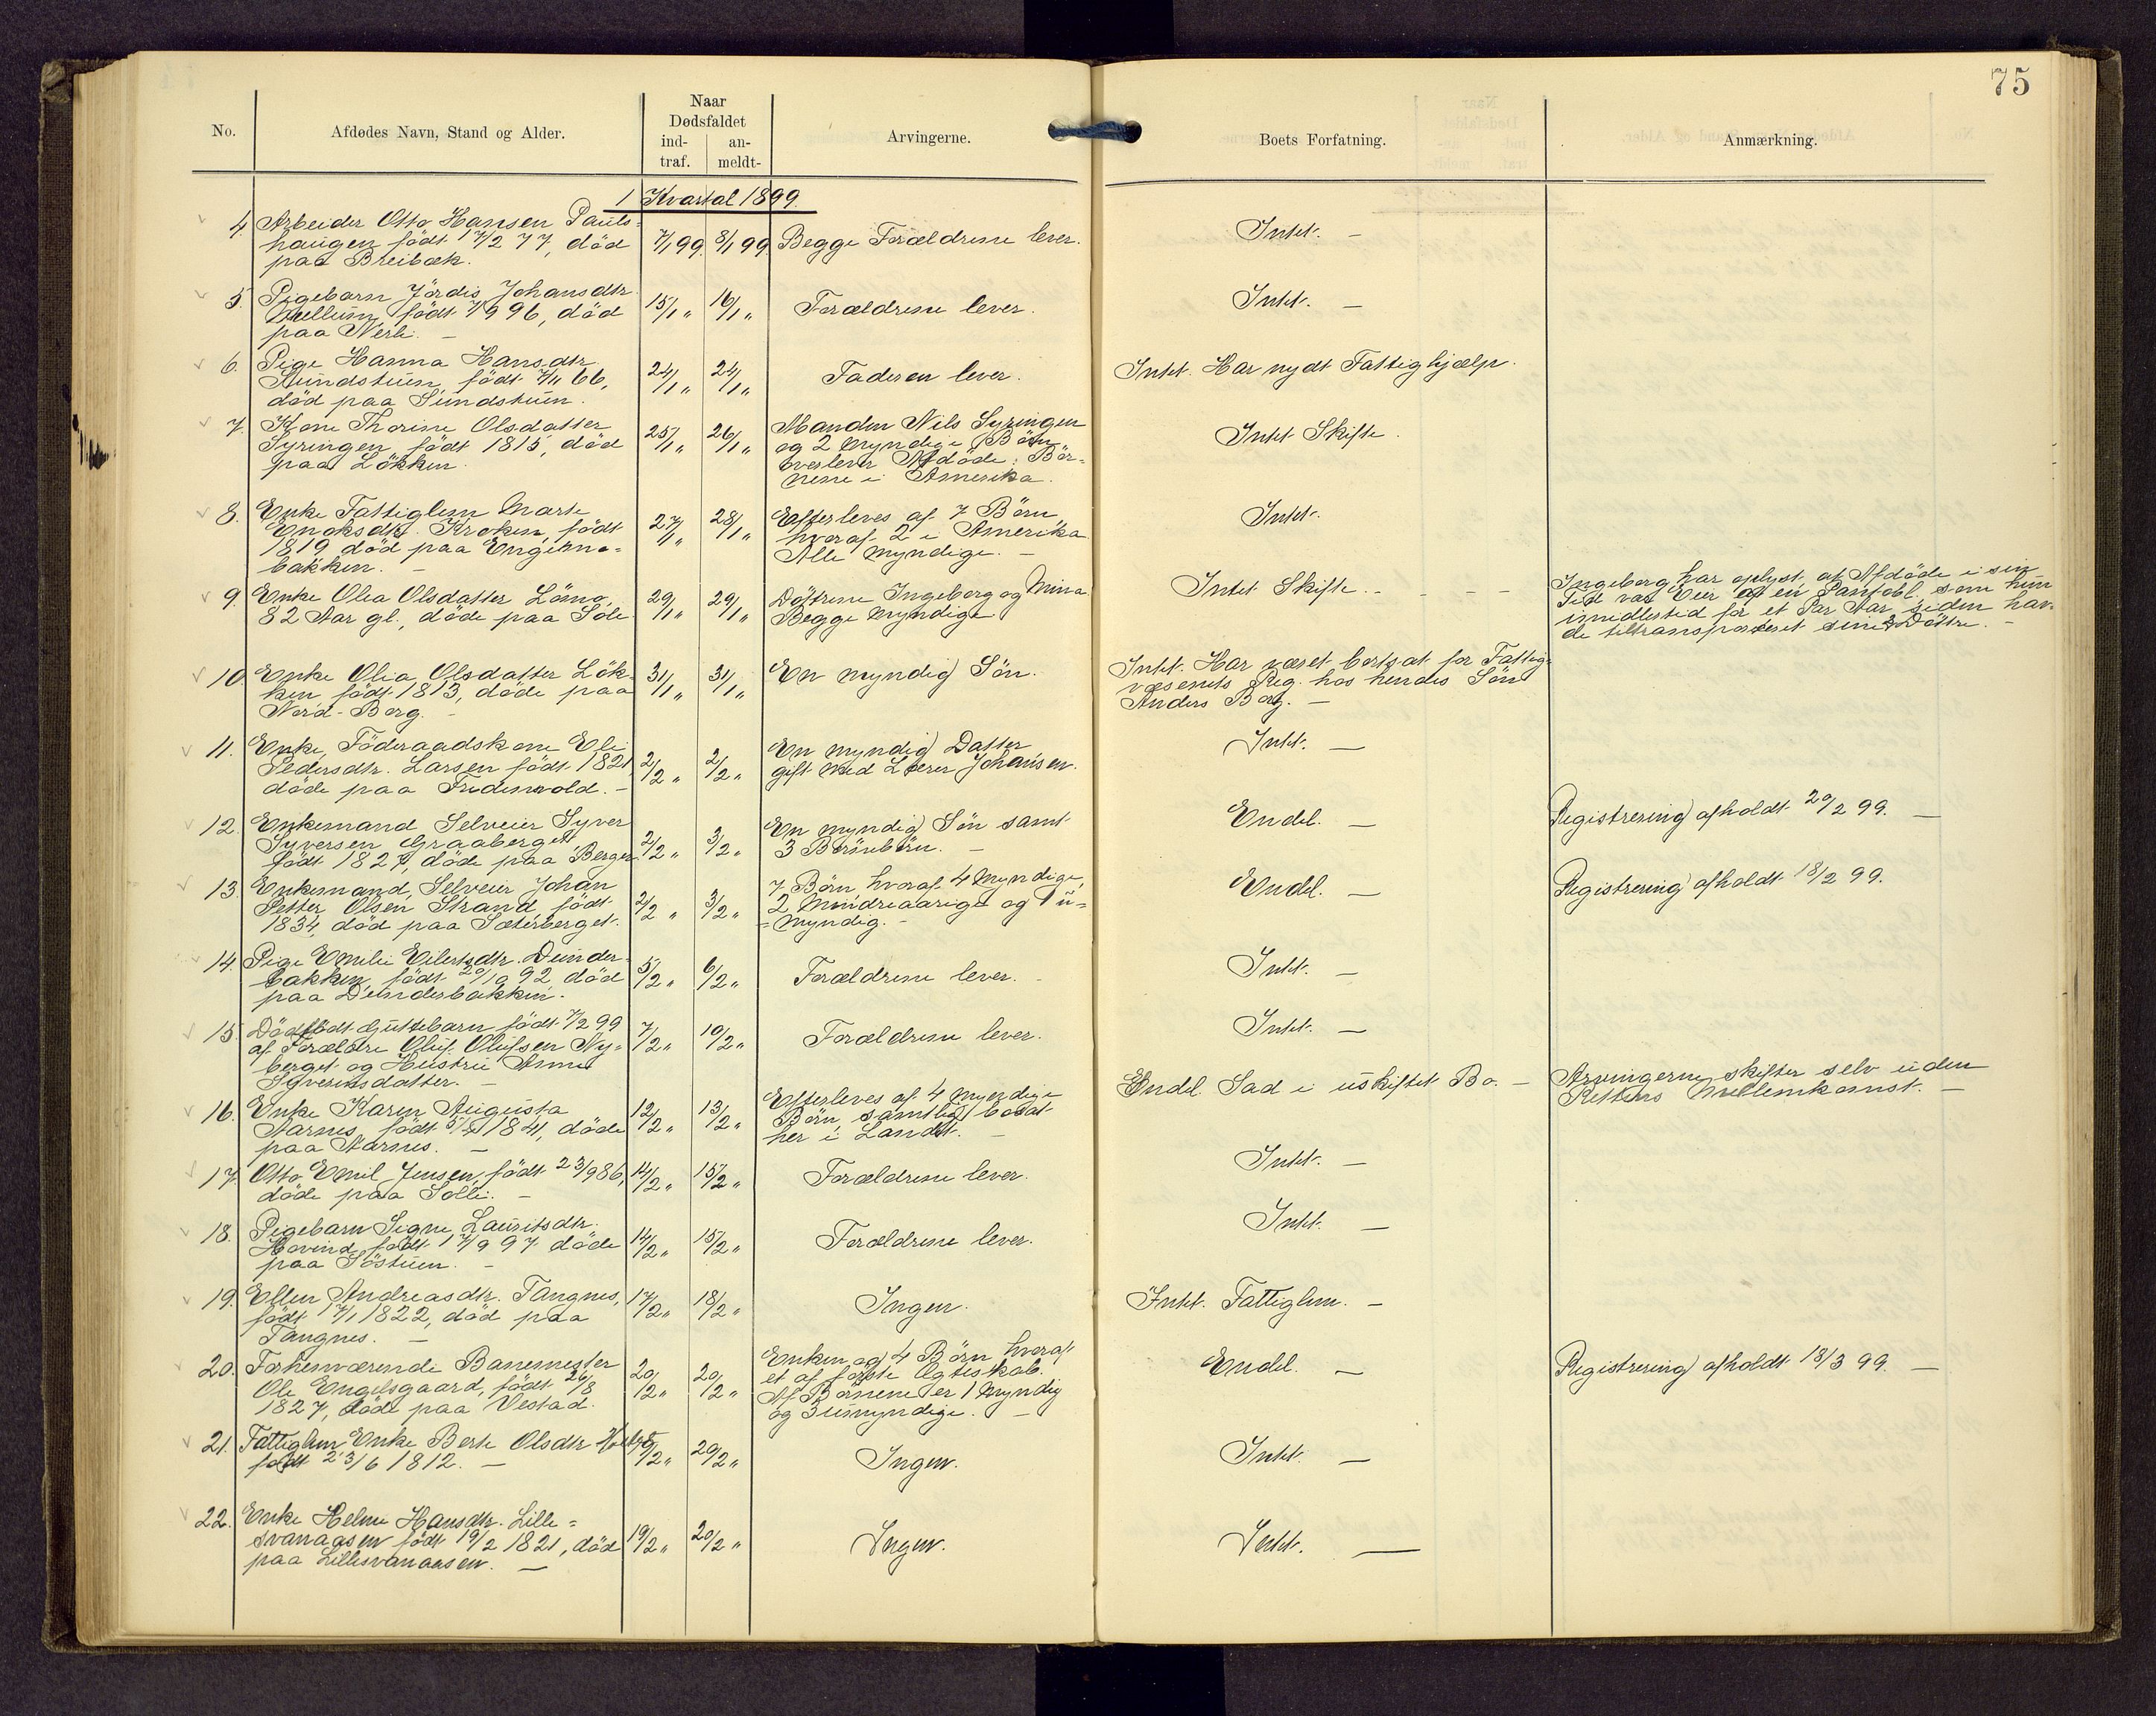 75
No. Afdødes Navn, Stand og Alder. Naar Dødsfaldet ind-traf. an-meldt- Arvingerne. Boets Forfatning. Anmærkning.
1 Kvartal 1899.
4. Arbeider Otto Hansen Pauls-
haugen født 17/2 77, död
paa Breibæk.
7/1 99. 8/1 99. Begge Forældrene lever.
Intet. —
5. Pigebarn Jördis Johansdtr.
født 7/9 96, död
paa Nerli. —
15/1 „ 16/1 „ Forældrene lever.
Intet. —
6. Pige Hanna Hansdtr.
Sundstuen, født 7/11 66,
död paa Sundstuen.
24/1 „ 24/1 „ Faderen lever.
Intet. Har nydt Fattighjælp.
7. Kone Thorine Olsdatter
Syringen, født 1815, död
paa Lökken.
25/1 „ 26/1 „ Manden Nils Syringen
og 2 myndige Börn
overlever Afdöde; Bör-
nene i Amerika.
Intet Skifte.
8. Enke Fattiglem Marte
Enoksdtr. Kroken, født
1819, död paa Engerno-
bakken. —
27/1 „ 28/1 „ Efterleves af 7 Börn
hvoraf 2 i Amerika
Alle myndige. —
Intet.
9. Enke Olea Olsdatter Lömo,
82 Aar gl., döde paa Sole
29/1 „ 29/1 „ Döttrene Ingeborg og Mina
Begge myndige
Intet Skifte. — — —
Ingeborg har oplyst, at Afdöde i sin
Tid var Eier af en Pantobl. som hun
imidlertid for et Par Aar siden hav-
de tiltransporteret sine 2 Döttre. —
10. Enke Olia Olsdatter Lök-
ken født 1813, döde paa
Nord-Berg. —
31/1 „ 31/1 „ En myndig Sön.
Intet. Har været bortsat for Fattig-
væsenets Reg. hos hendes Sön
Anders Berg. —
11. Enke, Föderaadskone Eli
Pedersdtr. Larsen født 1821
döde paa Fredensvold. —
2/2 „ 2/2 „ En myndig Datter
gift med Lærer Johansen.
Intet. —
12. Enkemand Selveier Syver
Syversen Graaberget
født 1827, döde paa Berget.
2/2 „ 3/2 „ En myndig Sön samt
3 Börnebörn. —
Endel. —
Registrering afholdt 20/2 99. —
13. Enkemand, Selveier Johan
Petter Olsen Strand født
1834, död paa Sæterberget.
2/2 „ 3/2 „ 7 Börn hvoraf 4 Myndige,
2 Mindreaarige og 1 u-
=myndig. —
Endel. —
Registrering afholdt 18/2 99.
14. Pige Emilie Eilertsdtr. Dunder-
bakken, født 20/10 92, död
paa Dunderbakken.
5/2 „ 6/2 „ Forældrene lever. —
Intet. —
15. Dödfödt Guttebarn født 7/2 99
af Forældre Oluf Olufsen Ny-
berget og Hustru Anne
Syverinsdatter. —
7/2 „ 10/2 „ Forældrene lever.
Intet. —
16. Enke Karen Augusta
Aarnes, født 1841, döde
paa Aarnes. —
12/2 „ 13/2 „ Efterleves af 4 myndige
Börn, samtlige bosat
her i Landet. —
Endel. Sad i uskiftet Bo. —
Arvingerne skifter selv uden
Rettens Mellemkomst. —
17. Otto Emil Jensen, født 23/9 86,
döde paa Solli. —
14/2 „ 15/2 „ Forældrene lever.
Intet. —
18. Pigebarn Signe Lauritsdtr.
Hovind, født 17/9 97 döde
paa Söstuen. —
14/2 „ 15/2 „ Forældrene lever.
Intet. —
19. Ellen Andreasdtr. Tangnes,
født 17/1 1822, död paa
Tangnes. —
17/2 „ 18/2 „ Ingen.
Intet. Fattiglem. —
20. Forhenværende Banemester
Ole Engelsgaard, født 26/8
1827, döde paa Vestad.
20/2 „ 20/2 „ Enken og 4 Börn hvoraf
et af første Ægteskab.
Af Börnene er 1 Myndig
og 3 umyndige. —
Endel. —
Registrering afholdt 18/3 99. —
21. Fattiglem Enke Berte Olsdtr
født 23/6 1812. —
20/2 „ Ingen.
Intet. —
22. Enke Helene Hansdtr. Lille-
svanaasen født 19/2 1821, död
paa Lillesvanaasen. —
19/2 „ 20/2 „ Ingen.
Intet. —